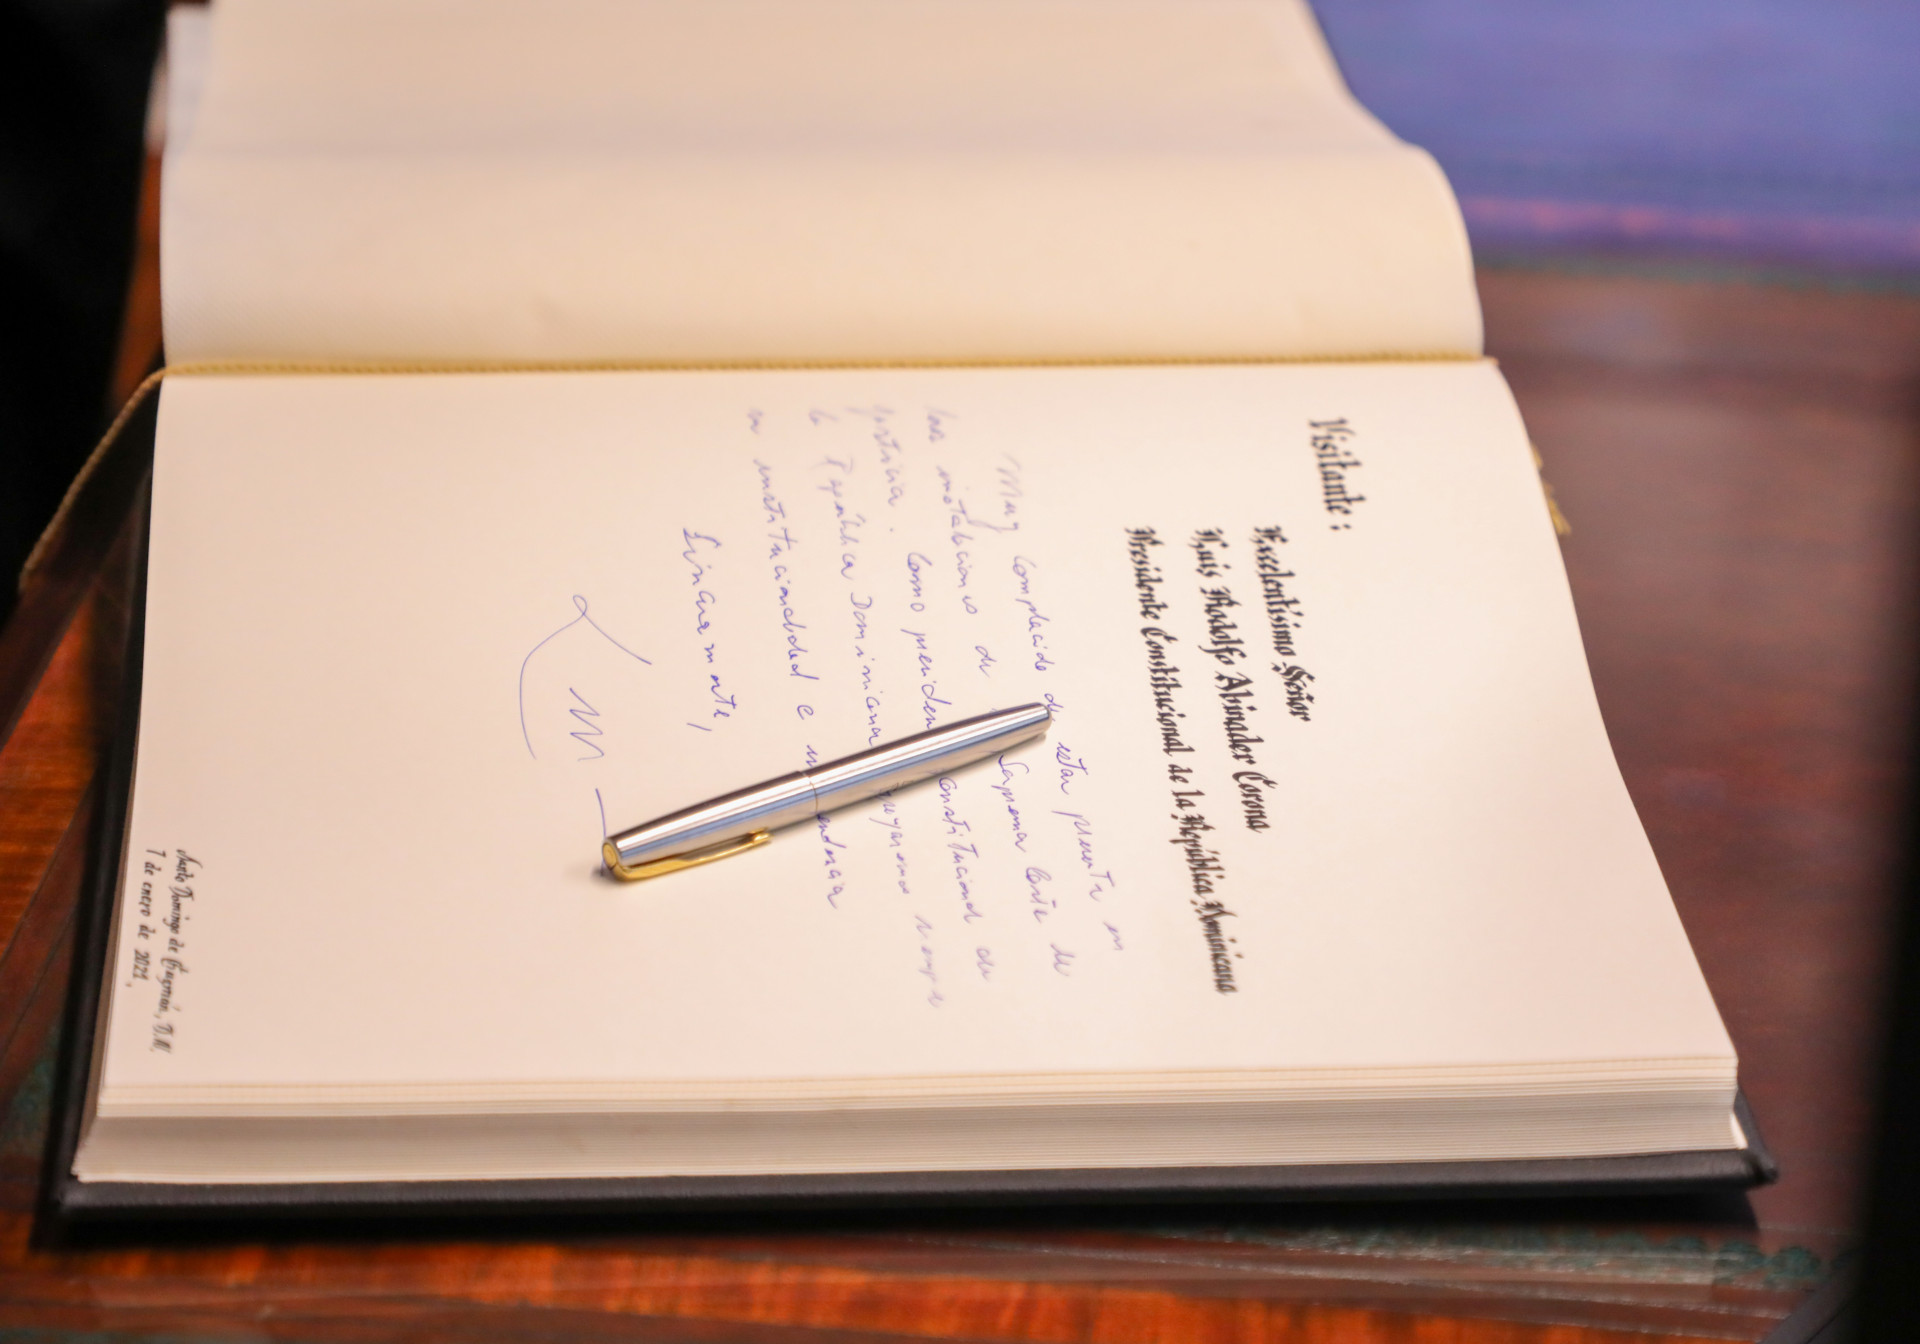 Visitante:
Excelentísimo Señor
Luis Rodolfo Abinader Corona
Presidente Constitucional de la República Dominicana
Muy complacido de estar presente en
las instalaciones de Suprema Corte de
justicia. Como presiden constitucional de
la República Dominicana siempre
su institucionalidad e
Sinceramente,
Santo Domingo de Guzmán, D.N.
7 de enero de 2021.